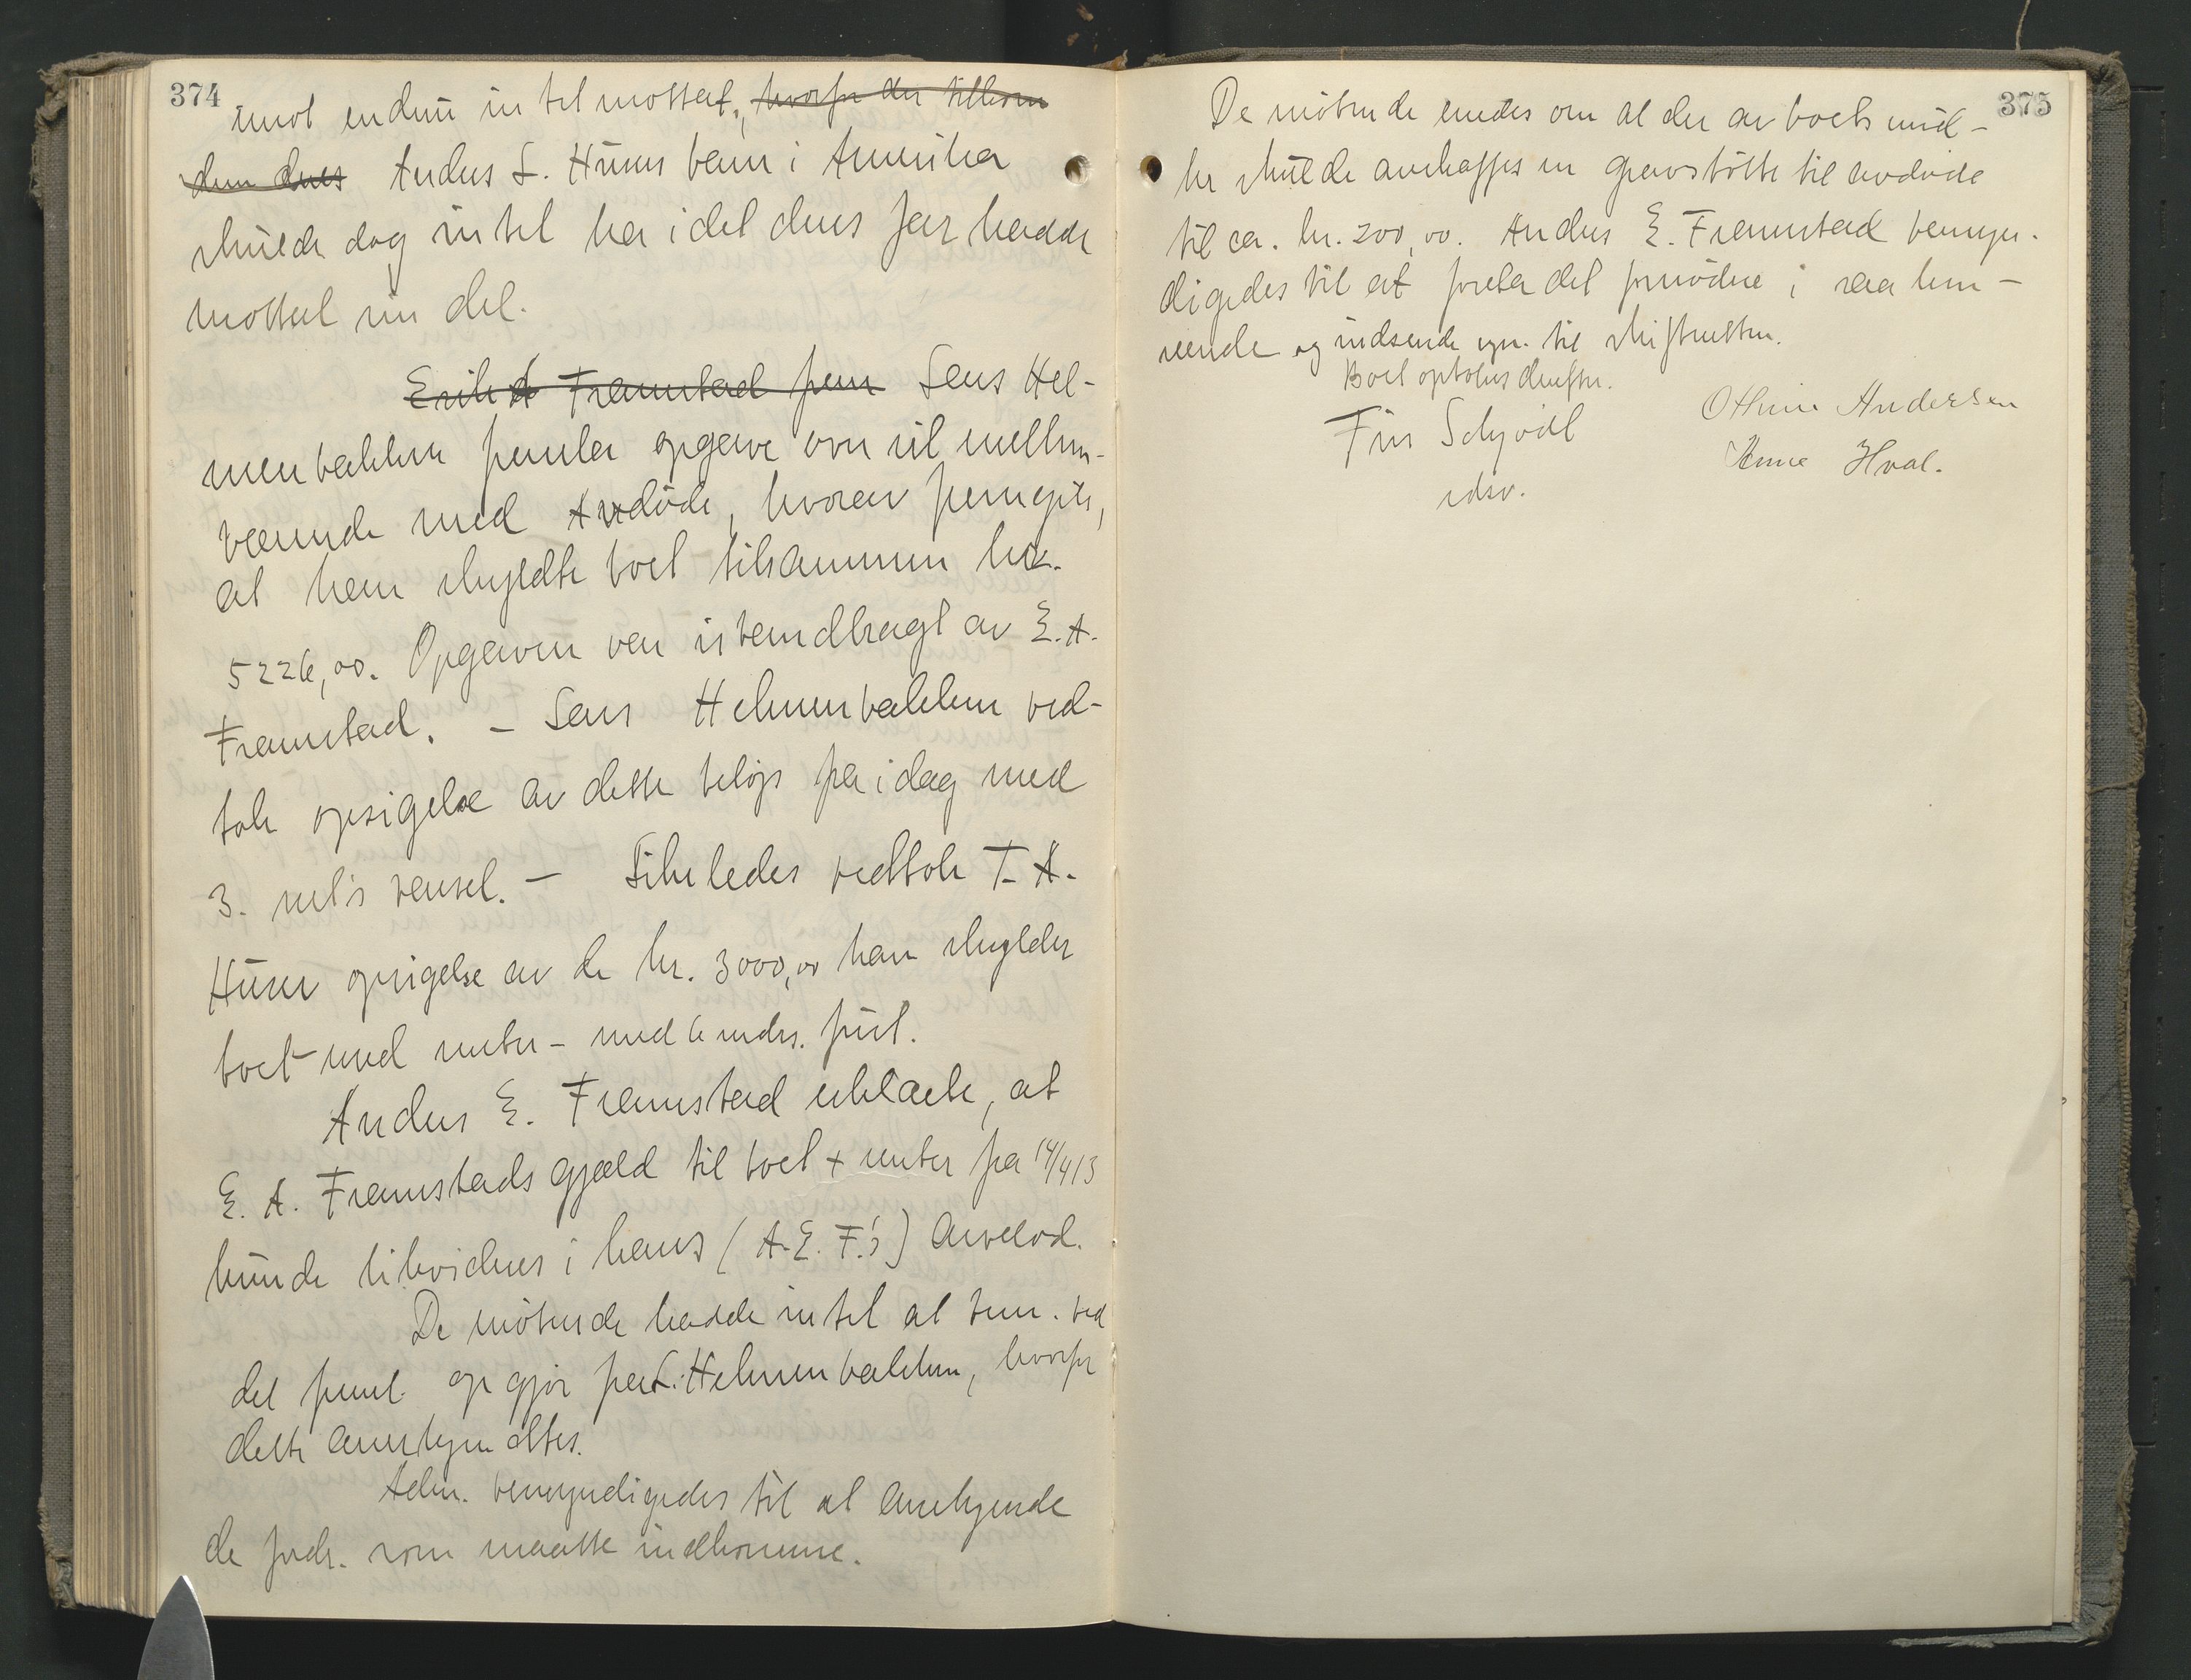 374
imot endnu intet mottat, hvorfor der tilkom
dem deres Anders L. Huuns barn i Amerika
skulde dog intet ha idet deres far hadde
mottat sin del.
Erik A Framstad frem Lars Hel-
menbakken fremla opgave over sit mellem-
værende med avdøde, hvorav fremgik,
at han skyldte boet tilsammen kr.
5226,00. Opgaven var istandbragt av E. A.
Framstad. - Lars Helmenbakken ved-
tok opsigelse av dette beløp fra idag med
3. mds varsel. - Likeledes vedtok T. A.
Huuse opsigelse av de kr. 3000,00 han skylder
boet - med renter - med 6 mdrs. frist.
Anders E. Framstad erklærte, at
E. A. Framstads gjæld til boet + renter fra 14/4 13
kunde likvideres i hans (A. E. F.'s) arvelod.
De møtende hadde intet at bem. ved
det freml. opgjør fra L. Helmenbakken, hvorfor
dette anerkjendtes.
Adm. bemyndigedes til at anerkjende
de fordr. som maatte indkomme.
375
De møtende enedes om at der av boets mid-
ler skulde anskaffes en gravstøtte til avdøde
til ca. kr. 200,00. Anders E. Framstad bemyn-
digedes til at foreta det fornødne i saa hen-
seende og indsende regn. til skifteretten.
Boet optokes derefter.
Finn Schjødt
edsv.
Othine Andersen
Anne Hval.